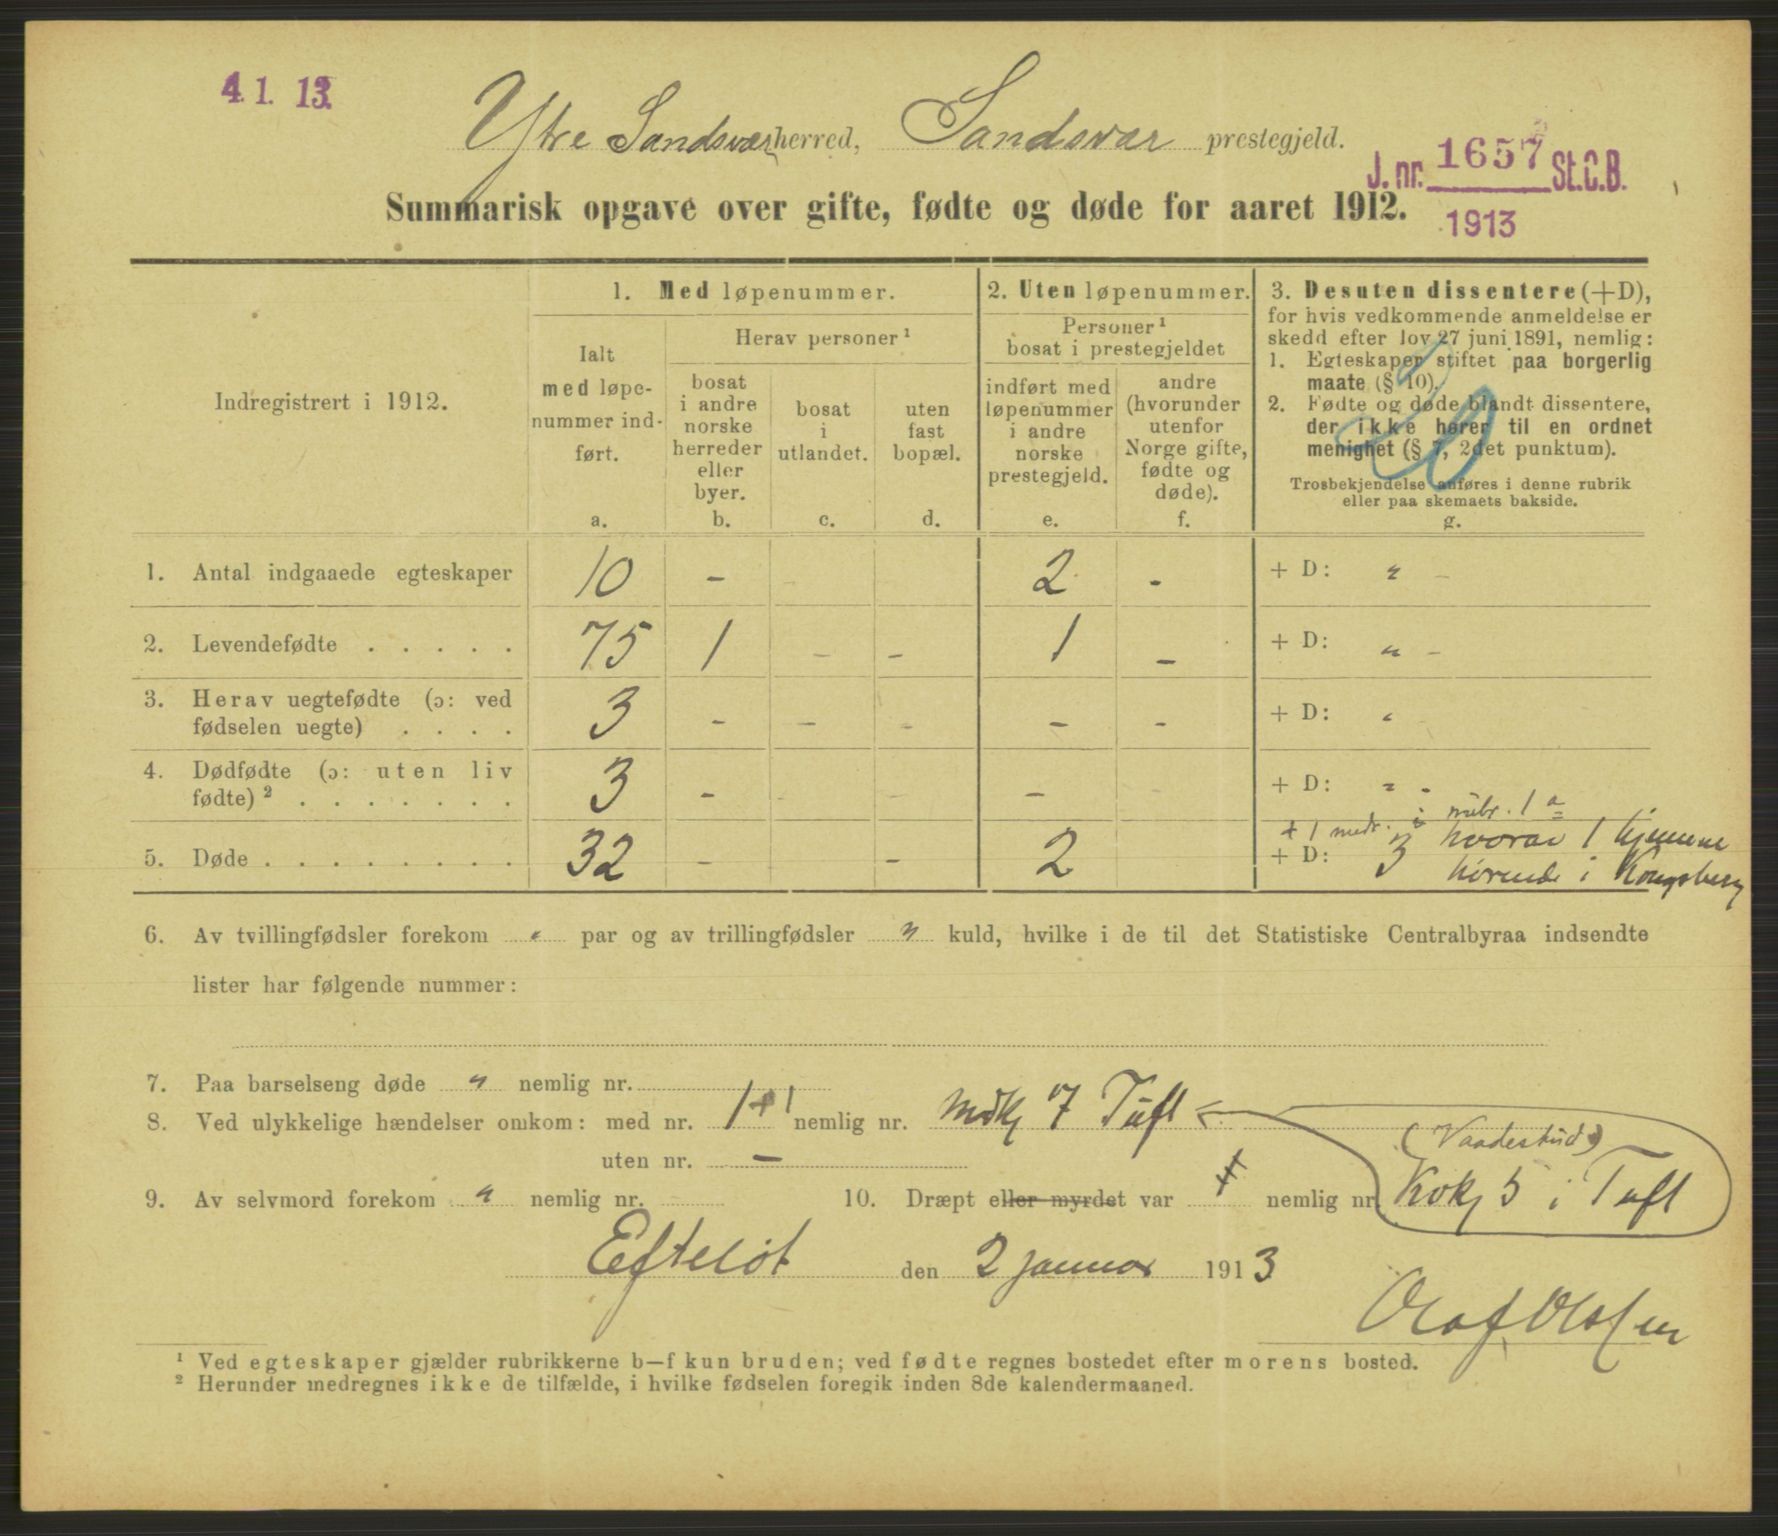 4. 1. 13.
Ytre Sandsvær herred, Sandsvær prestegjeld.
J. nr. 1657 St.C.B.
1913
Summarisk opgave over gifte, fødte og døde for aaret 1912.
Indregistrert i 1912.
1. Med løpenummer.
Ialt
med løpe-
nummer ind-
ført.
a.
Herav personer ¹
bosat
i andre
norske
herreder
eller
byer.
b.
bosat
i
utlandet.
c.
uten
fast
bopæl.
d.
2. Uten løpenummer.
Personer ¹
bosat i prestegjeldet
indført med
løpenummer
i andre
norske
prestegjeld.
e.
andre
(hvorunder
utenfor
Norge gifte,
fødte og
døde).
f.
3. Desuten dissentere (+D),
for hvis vedkommende anmeldelse er
skedd efter lov 27 juni 1891, nemlig:
1. Egteskaper stiftet paa borgerlig
maate (§ 10).
2. Fødte og døde blandt dissentere,
der ikke hører til en ordnet
menighet (§ 7, 2det punktum).
Trosbekjendelse anføres i denne rubrik
eller paa skemaets bakside.
g.
1. Antal indgaaede egteskaper 10 - 2 - + D: " -
2. Levendefødte . . . . . 75 1 - - 1 - + D: " -
3. Herav uegtefødte (ɔ: ved
fødselen uegte) . . . . 3 - - - - - + D: "
4. Dødfødte (ɔ: uten liv
fødte) ² . . . . . . . 3 - - + D: " -
+ 1 medr. i rubr. 1 a
5. Døde . . . . . . . . 32 - - 2 + D: 3 hvorav 1 hjemme
hørende i Kongsberg
6. Av tvillingfødsler forekom " par og av trillingfødsler " kuld, hvilke i de til det Statistiske Centralbyraa indsendte
lister har følgende nummer:
7. Paa barselseng døde " nemlig nr.
8. Ved ulykkelige hændelser omkom: med nr. 1 + 1 nemlig nr. Mdkj 7 Tuft
(Vaadeskud)
uten nr. -
9. Av selvmord forekom " nemlig nr. 10. Dræpt eller myrdet var 1 nemlig nr. Kvkj 5 i Tuft
Efteløt den 2 januar 1913
Olaf Olafsen
¹ Ved egteskaper gjælder rubrikkerne b—f kun bruden; ved fødte regnes bostedet efter morens bosted.
² Herunder medregnes ikke de tilfælde, i hvilke fødselen foregik inden 8de kalendermaaned.